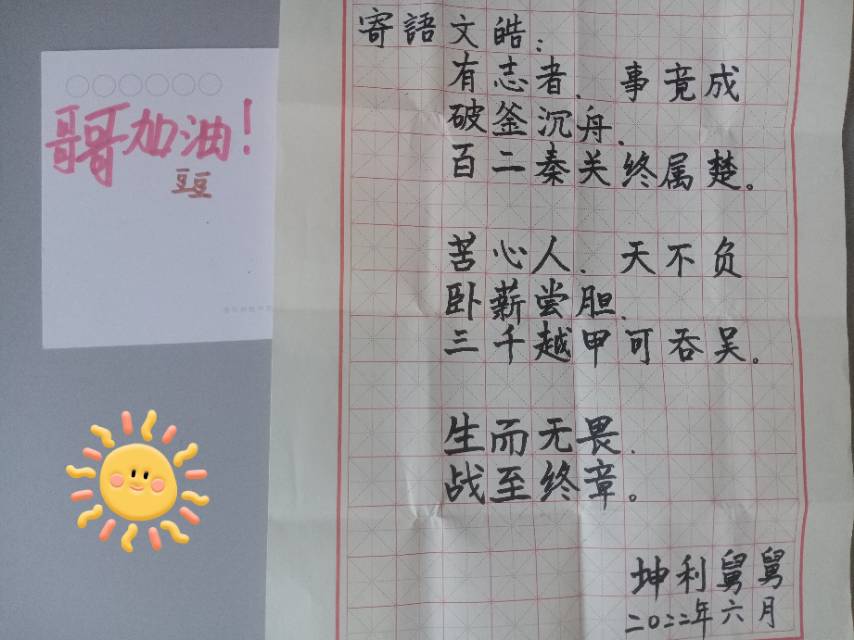 哥哥加油！
豆豆
寄語文皓：
有志者、事竟成
破釜沉舟、
百二秦关终属楚。
苦心人、天不负
卧薪尝胆、
三千越甲可吞吴。
生而无畏、
战至终章。
坤利舅舅
二〇二二年六月